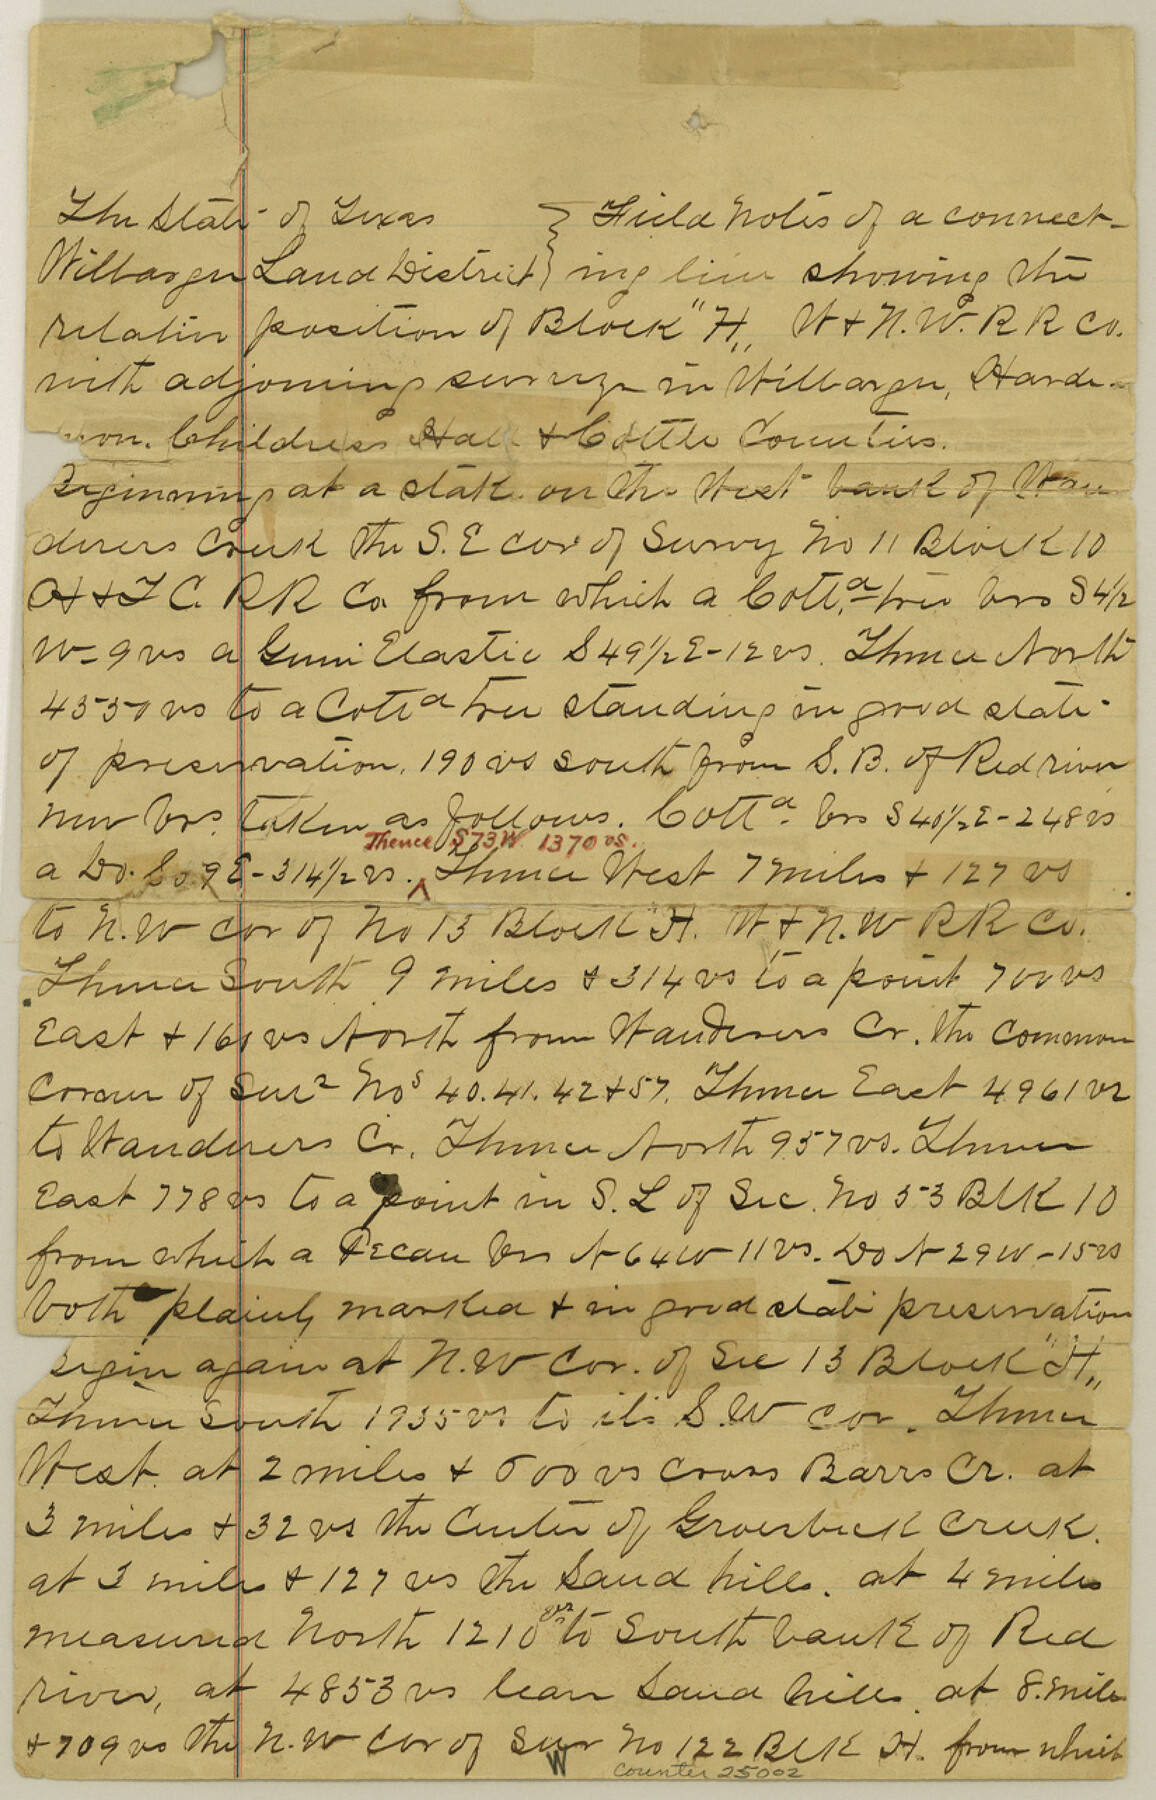 The State of Texas } Field Notes of a connect-
Wilbarger Land District } ing line showing the
relative position of Block "H" W & N.W. R R Co.
with adjoining surveys in Wilbarger, Harde-
man. Childress Hall & Cottle Counties.
Beginning at a stake on the West bank of Wan
derers Creek the S.E cor of Survey No 11 Block 10
H & T C. R R Co from which a Cottᵃ tree brs S 4½
W - 9 vs a Gum Elastic S 49½ E - 12 vs. Thence North
4550 vs to a Cottᵃ tree standing in good state
of preservation. 190 vs south from S. B. of Red river
new brs. taken as follows. Cottᵃ. brs S 40½ E - 248 vs
Thence S 73 W. 1370 vs.
a Do. So 9 E - 314½ vs. ^ Thence West 7 miles & 127 vs
to N.W cor of No 13 Block "H. W & N.W R R Co.
Thence South 9 miles & 314 vs to a point 700 vs
East & 160 vs North from Wanderers Cr. the common
corner of Surs Nos 40. 41. 42 & 57. Thence East 4961 vs
to Wanderers Cr. Thence North 957 vs. Thence
East 778 vs to a point in S. L of Sec. No 53 Blk 10
from which a Pecan brs N 64 W 11 vs. Do N 29 W - 15 vs
both plainly marked & in good state preservation
Begin again at N.W Cor. of Sec 13 Block "H"
Thence South 1935 vs to its S.W cor. Thence
West. at 2 miles & 600 vs cross Barrs Cr. at
3 miles & 32 vs the Center of Groesbeck Creek.
at 3 miles & 127 vs the Sand hills. at 4 miles
measured North 1210 vrs to South bank of Red
river, at 4853 vs leave Sand hills. at 8. miles
& 709 vs the N.W cor of Sur No 122 Blk H. from which
W counter 25002